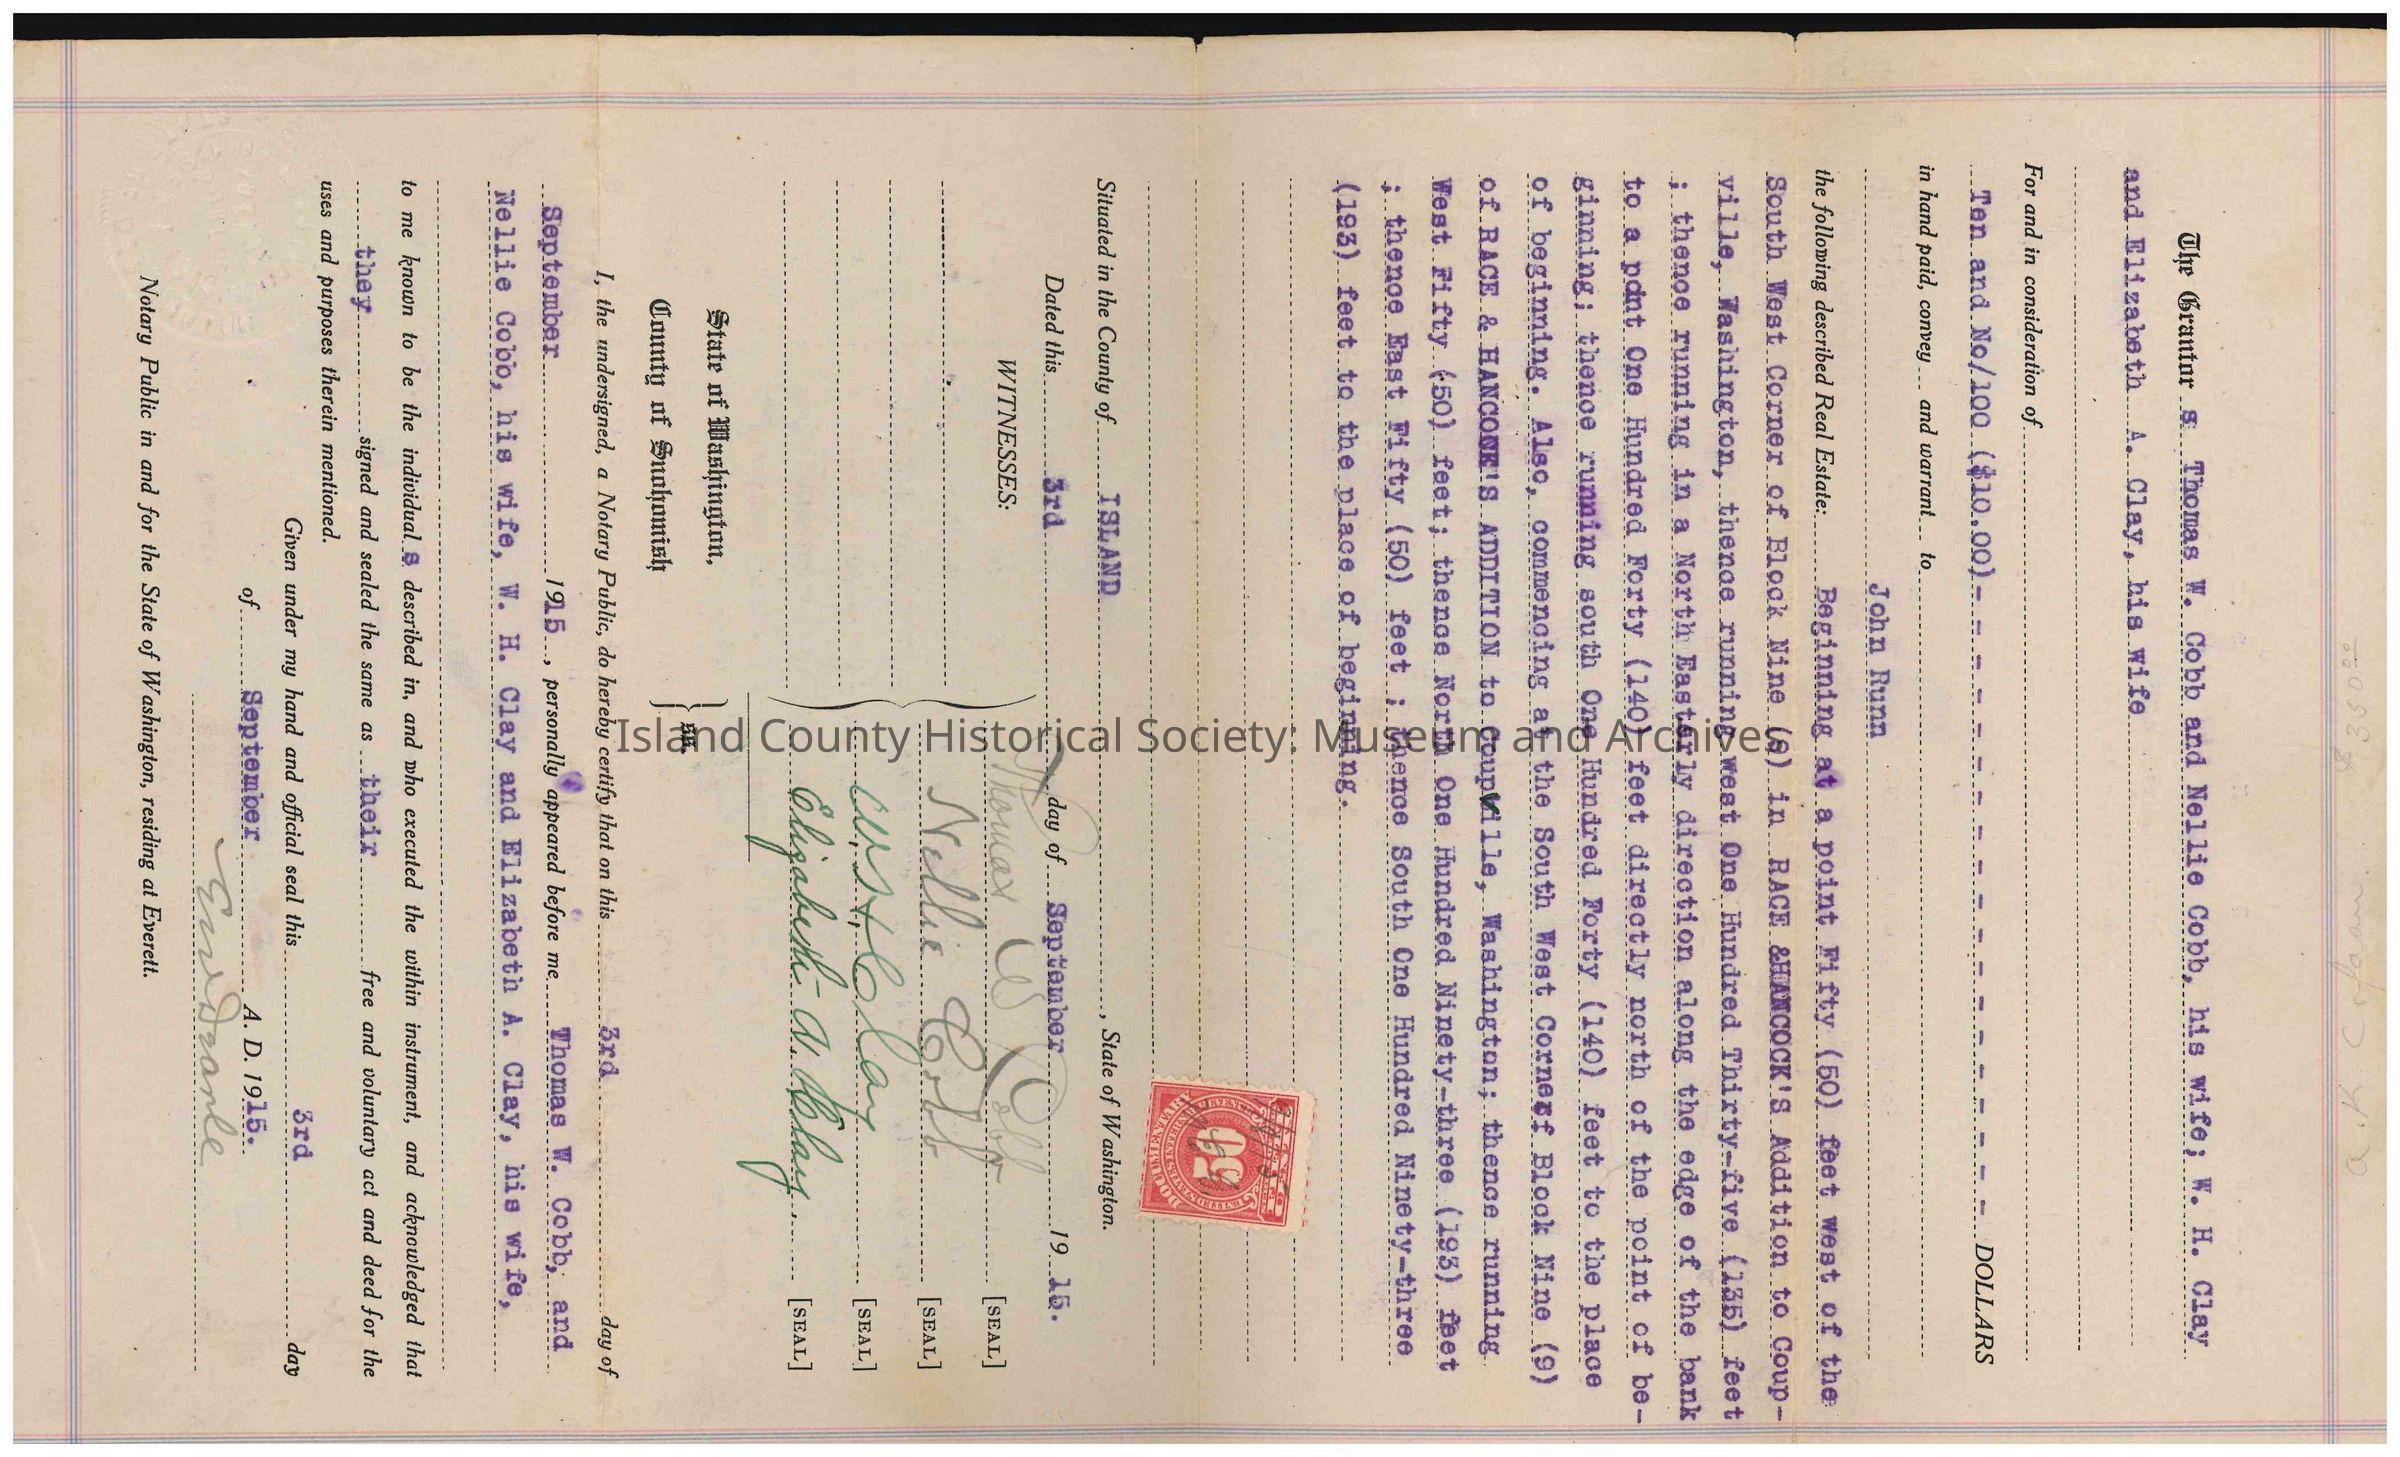 a. K. Cofran. $350.00
The Grantor s Thomas W. Cobb and Nellie Cobb, his wife; W. H. Clay
and Elizabeth A. Clay, his wife
For and in consideration of
Ten and No/100 ($10.00)- - - - - - - - - - - - - - - - - - - - - - DOLLARS
in hand paid, convey and warrant to
John Runn
the following described Real Estate: Beginning at a point Fifty (50) feet west of the
South West Corner of Block Nine (9) in RACE &HANCOCK'S Addition to Coup-
ville, Washington, thence running west One Hundred Thirty-five (135) feet
; thence running in a North Easterly direction along the edge of the bank
to a point One Hundred Forty (140) feet directly north of the point of be-
ginning; thence running south One Hundred Forty (140) feet to the place
of beginning. Also, commencing at the South West Corner of Block Nine (9)
of RACE & HANCOCK'S ADDITION to Coupville, Washington; thence running
West Fifty (50) feet; thence North One Hundred Ninety-three (193) feet
; thence East Fifty (50) feet ; thence South One Hundred Ninety-three
(193) feet to the place of beginning.
50
Situated in the County of ISLAND , State of Washington.
Dated this 3rd day of September 19 15.
WITNESSES:
Thomas W Cobb [SEAL]
Nellie Cobb [SEAL]
W. H. Clay [SEAL]
Elizabeth A. Clay. [SEAL]
State of Washington,
County of Snohomish
} ss.
I, the undersigned, a Notary Public, do hereby certify that on this 3rd day of
September 1915 , personally appeared before me Thomas W. Cobb, and
Nellie Cobb, his wife, W. H. Clay and Elizabeth A. Clay, his wife,
to me known to be the individual s described in, and who executed the within instrument, and acknowledged that
they signed and sealed the same as their free and voluntary act and deed for the
uses and purposes therein mentioned.
Given under my hand and official seal this 3rd day
of September A. D. 1915.
Notary Public in and for the State of Washington, residing at Everett.
Island County Historical Society: Museum and Archives